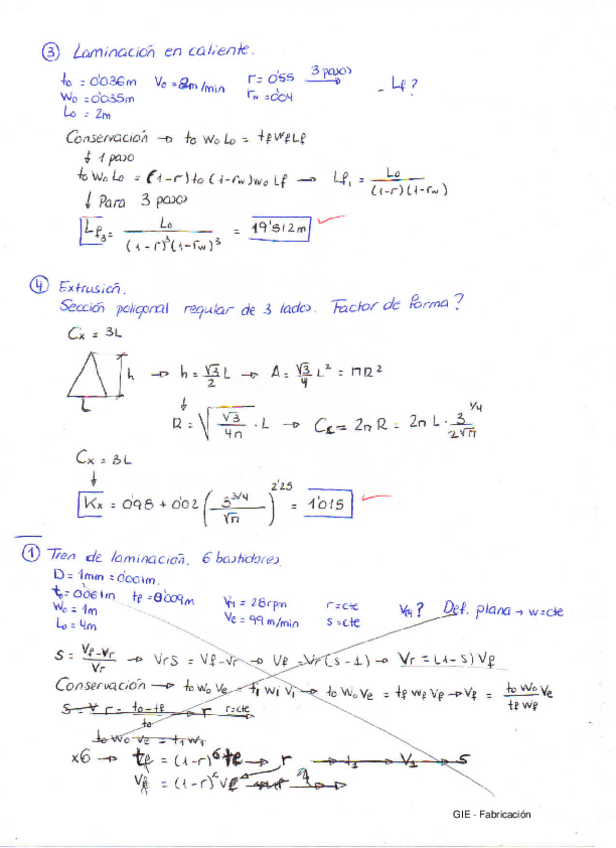 ③ Laminación en caliente.
to = 0'036m   Vo = 8m/min   r = 0'55   3 pasos →   - Lf?
Wo = 0'035m   rw = 0'04
Lo = 2m
Conservación → to Wo Lo = tf Wf Lf
↓ 1 paso
to Wo Lo = (1-r) to (1-rw) Wo Lf → Lf1 = Lo / (1-r)(1-rw)
↓ Para 3 pasos
Lf3 = Lo / (1-r)^3 (1-rw)^3 = 19'512m
④ Extrusión.
Sección poligonal regular de 3 lados. Factor de forma?
Cx = 3L
h → h = √3/2 L → A = √3/4 L² = πR²
L
R = √(√3/4π) · L → Cc = 2πR = 2π L · 3^1/4 / 2√π
Cx = 3L
↓
Kx = 0'98 + 0'02 (3^3/4 / √π)^2'25 = 1'015
① Tren de laminación. 6 bastidores.
D = 1mm = 0'001m.
to = 0'061m   tf = 0'009m   Vr1 = 28rpm   r = cte   Def. plana → w = cte
Wo = 1m   Ve = 99 m/min   s = cte
Lo = 4m
S = Vf - Vr / Vr → Vr S = Vf - Vr → Vf = Vr (s-1) → Vr = (1-s) Vf
Conservación → to Wo Ve = t1 W1 V1 → to Wo Ve = tf Wf Vf → Vf = to Wo Ve / tf Wf
to - tf / to → r   r = cte
to Wo Ve = t1 W1
x6 → tf = (1-r)^6 to → r → t1 → V1 → S